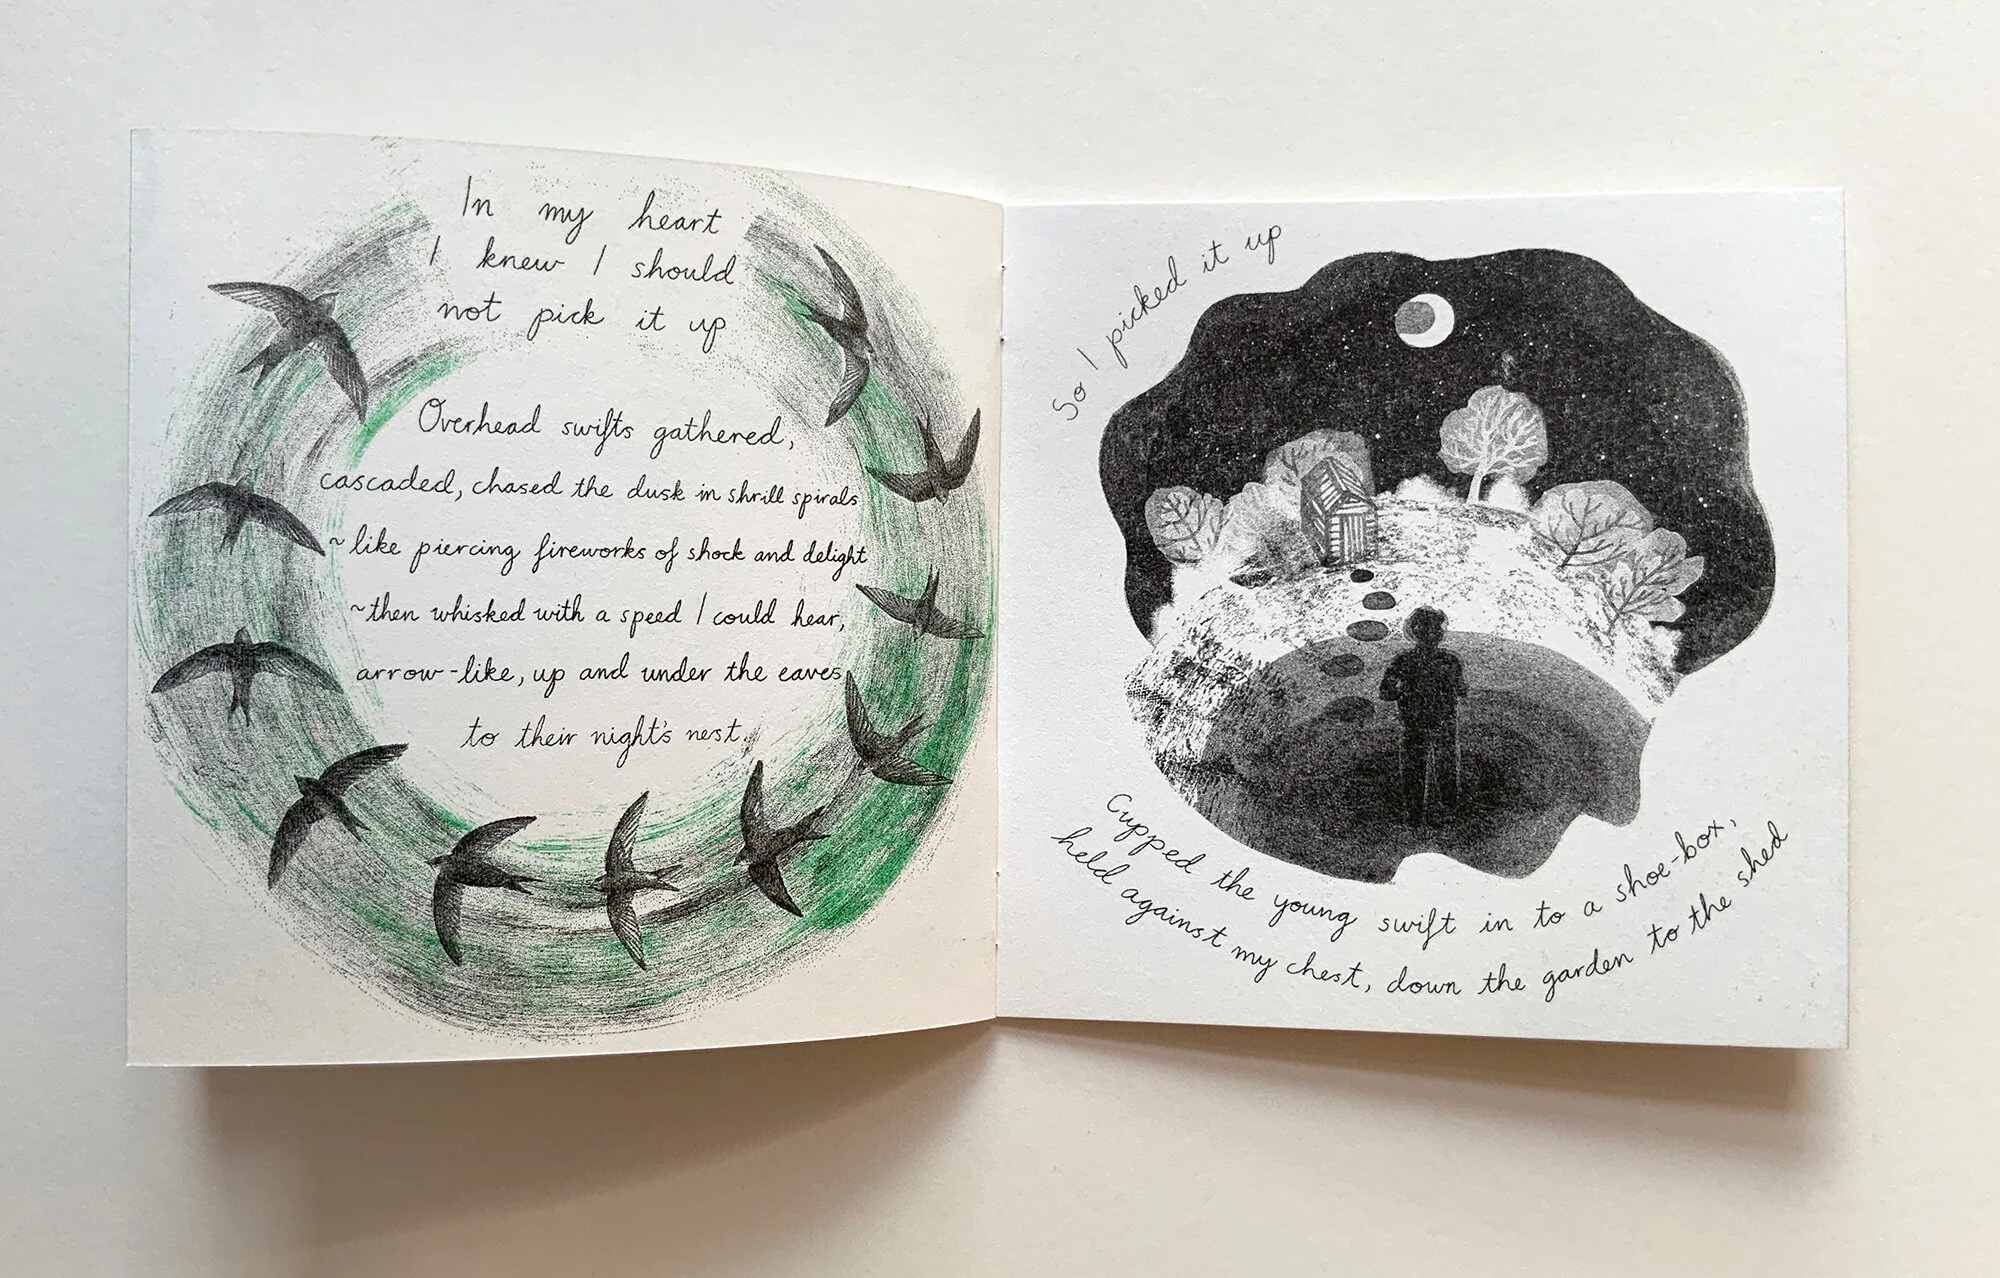 In my heart
I knew I should
not pick it up
Overhead swifts gathered,
cascaded, chased the dusk in shrill spirals
~like piercing fireworks of shock and delight
~then whisked with a speed I could hear,
arrow-like, up and under the eaves
to their night's nest.
So I picked it up
Cupped the young swift in to a shoe-box,
held against my chest, down the garden to the shed